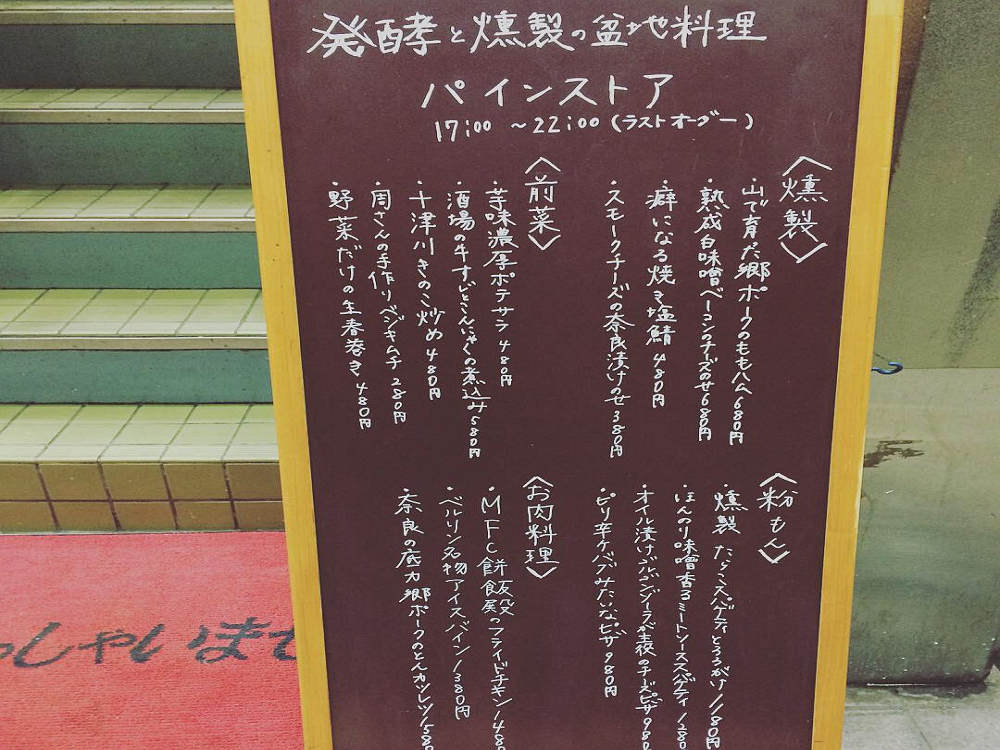 発酵と燻製の盆地料理
パインストア
17:00 ~22:00(ラストオーダー)
〈燻製〉
・山で育った郷ポークのももハム680円
・熟成白味噌ベーコンのチーズのせ680円
・癖になる焼き塩鯖480円
・スモークチーズの奈良漬けのせ380円
〈前菜〉
・芋味濃厚ポテサラ480円
・酒場の牛すじとこんにゃくの煮込み580円
・十津川きのこ炒め480円
・周さんの手作りベジキムチ280円
・野菜だけの生春巻き480円
〈粉もん〉
・燻製たらこスパゲティとろろがけ1180円
・ほんのり味噌香るミートソーススパゲティ1280
・オイル漬けゴルゴンゾーラが主役のチーズピザ980
・ピリ辛ケバブみたいなピザ980円
〈お肉料理〉
・MFC餅飯殿フライドチキン1480
・ベルリン名物アイスバイン1380円
・奈良の底力郷ポークのとんカツレツ1580
っしゃいませ